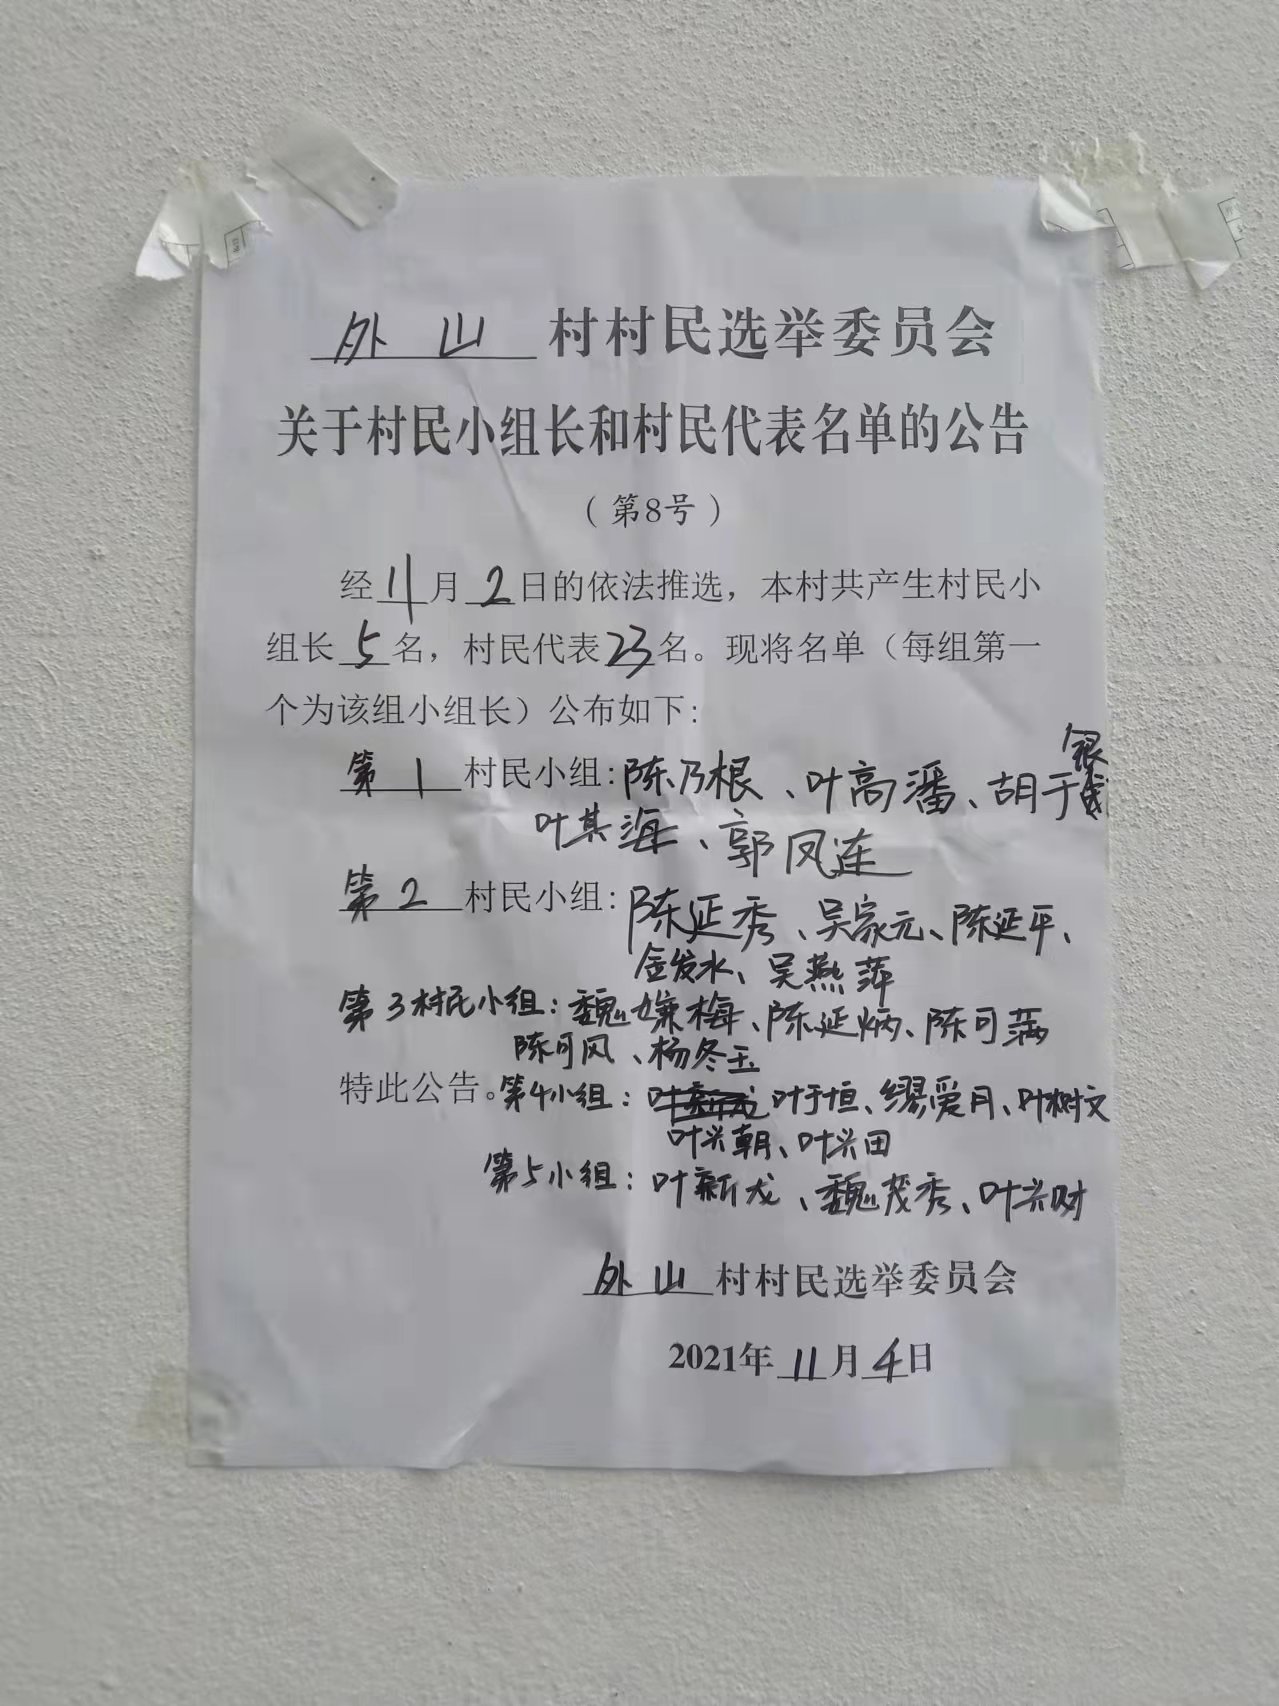 外山村村民选举委员会
关于村民小组长和村民代表名单的公告
（第8号）
经11月2日的依法推选，本村共产生村民小
组长5名，村民代表23名。现将名单（每组第一
个为该组小组长）公布如下:
第1村民小组:陈乃根、叶高潘、胡于银
叶其海、郭凤连
第2村民小组:陈延秀、吴家元、陈延平、
金发水、吴燕萍
第3村民小组:魏嫌梅、陈延炳、陈可满
陈可风、杨冬玉
特此公告。第4小组:叶于恒、缪爱月、叶树文
叶兴朝、叶兴田
第5小组:叶新龙、魏茂秀、叶兴财
外山村村民选举委员会
2021年11月4日